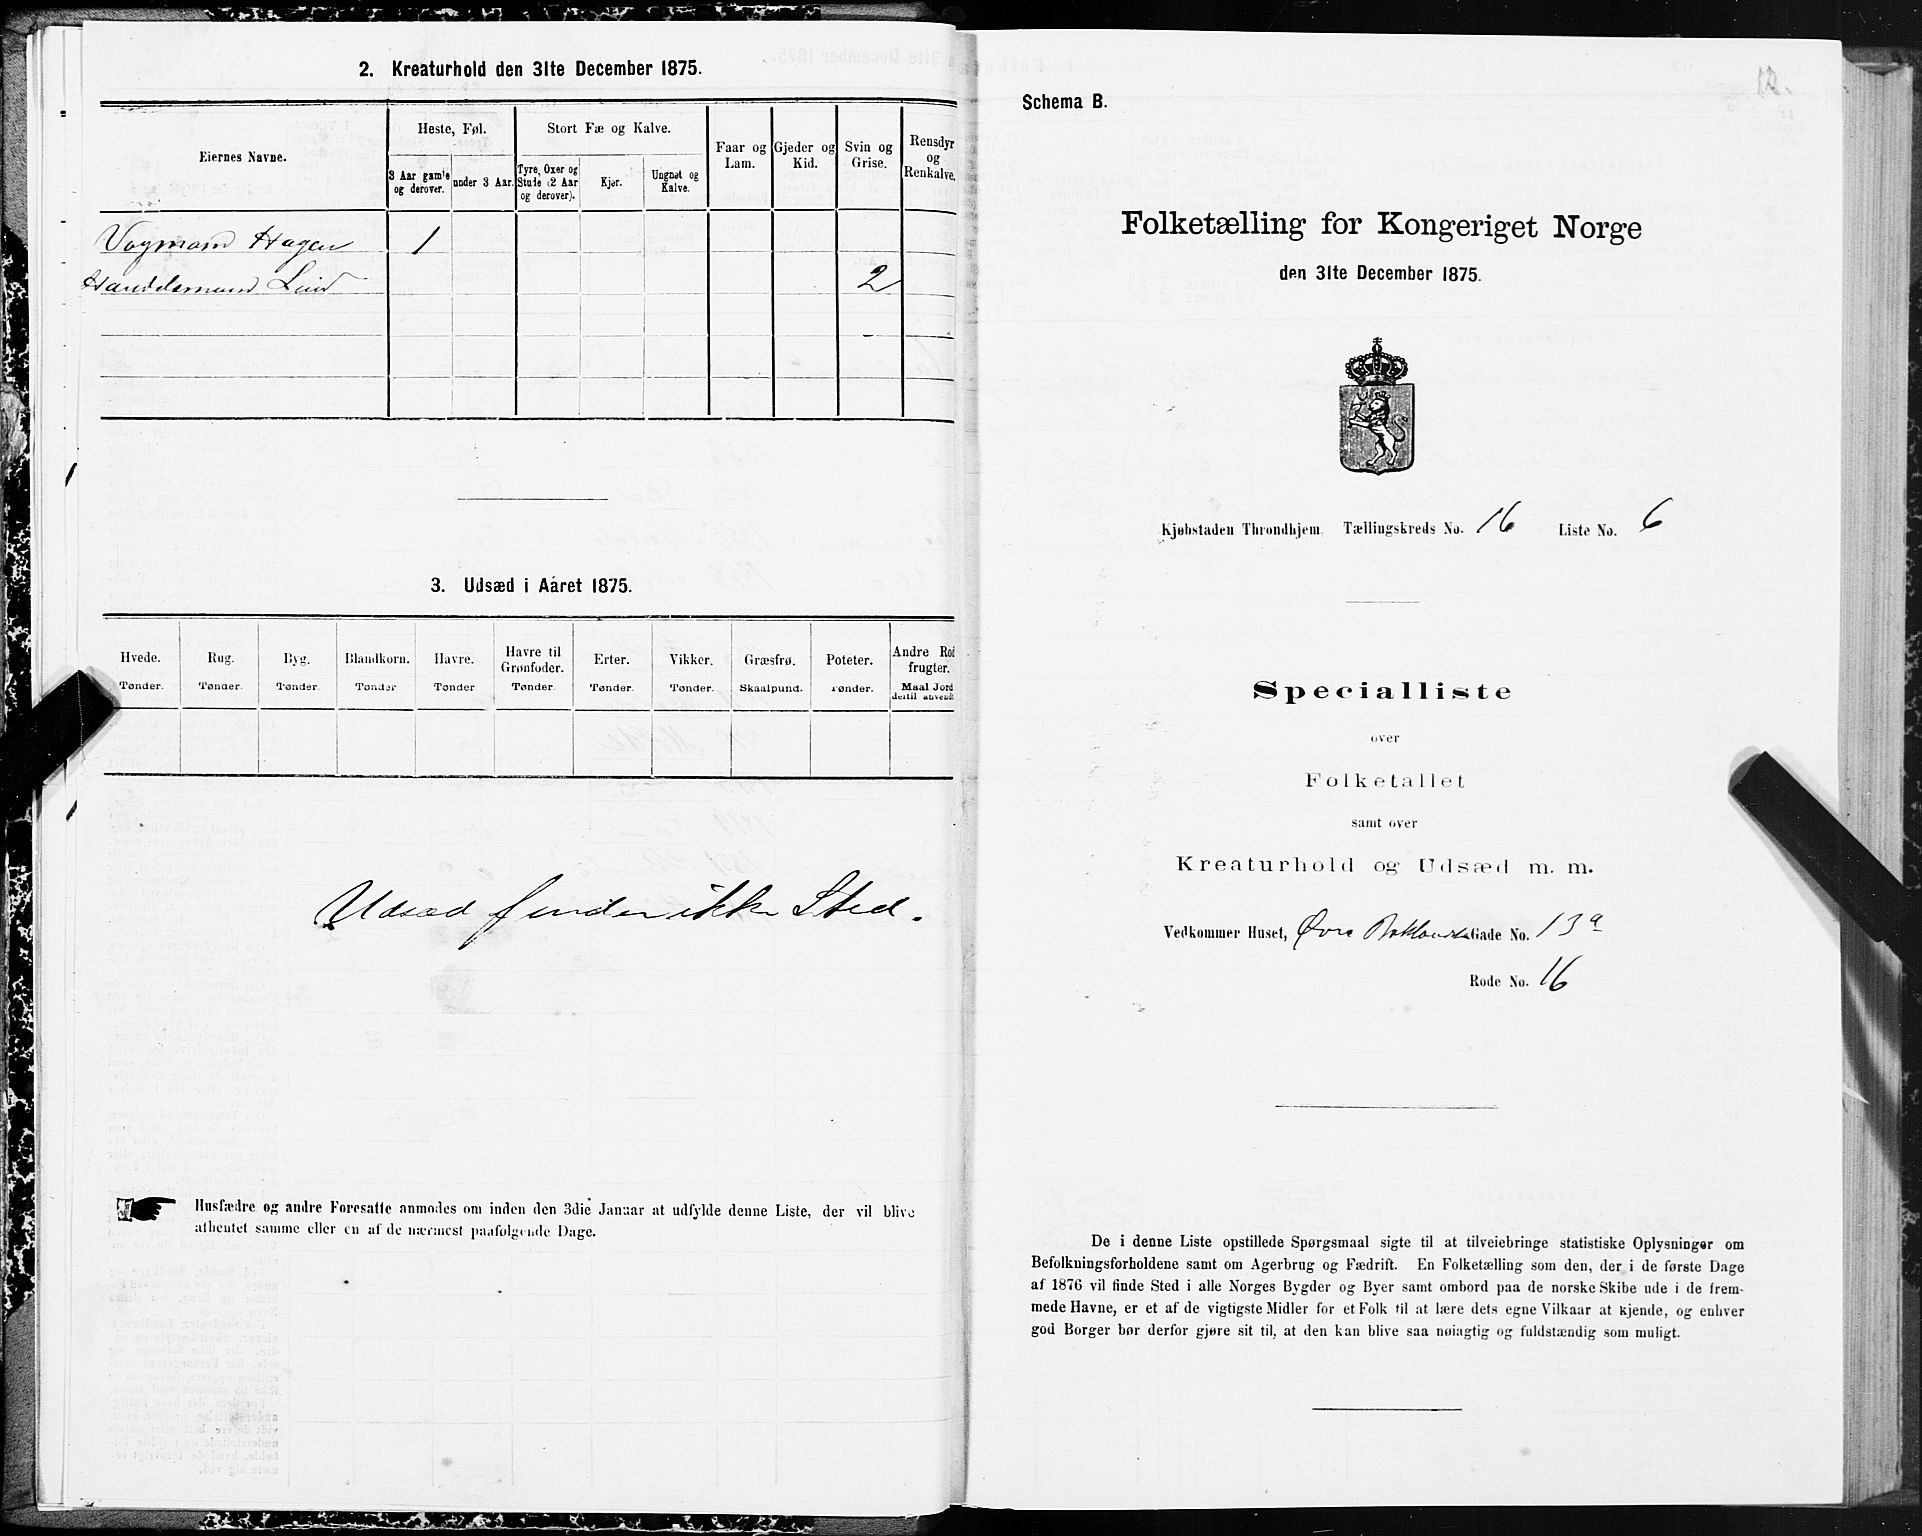 2. Kreaturhold den 31te December 1875.
Eiernes Navne.
Heste, Føl.
3 Aar gamle og derover.
under 3 Aar.
Stort Fæ og Kalve.
Tyre, Oxer og Stude (2 Aar og derover).
Kjør.
Ungnøt og Kalve.
Faar og Lam.
Gjeder og Kid.
Svin og Grise.
Rensdyr og Renkalve.
Vogmand Hagen 1
Handelsmand 2
3. Udsæd i Aaret 1875.
Hvede. Tønder.
Rug. Tønder.
Byg. Tønder.
Blandkorn. Tønder
Havre. Tønder
Havre til Grønfoder. Tønder.
Erter. Tønder.
Vikker. Tønder.
Græsfrø. Skaalpund.
Poteter. Tønder.
Andre Rodfrugter. Maal Jord dertil anvendt
Udsæd finder ikke Sted.
Husfædre og andre Foresatte anmodes om inden den 3die Januar at udfylde denne Liste, der vil blive
afhentet samme eller en af de nærmest paafølgende Dage.
12.
Schema B.
Folketælling for Kongeriget Norge
den 31te December 1875.
Kjøbstaden Throndhjem. Tællingskreds No. 16 Liste No. 6
Specialliste
over
Folketallet
samt over
Kreaturhold og Udsæd m. m.
Vedkommer Huset, Øvre Baklands Gade No. 13a
Rode No. 16
De i denne Liste opstillede Spørgsmaal sigte til at tilveiebringe statistiske Oplysninger om
Befolkningsforholdene samt om Agerbrug og Fædrift. En Folketælling som den, der i de første Dage
af 1876 vil finde Sted i alle Norges Bygder og Byer samt ombord paa de norske Skibe ude i de frem-
mede Havne, er et af de vigtigste Midler for et Folk til at lære dets egne Vilkaar at kjende, og enhver
god Borger bør derfor gjøre sit til, at den kan blive saa nøiagtig og fuldstændig som muligt.